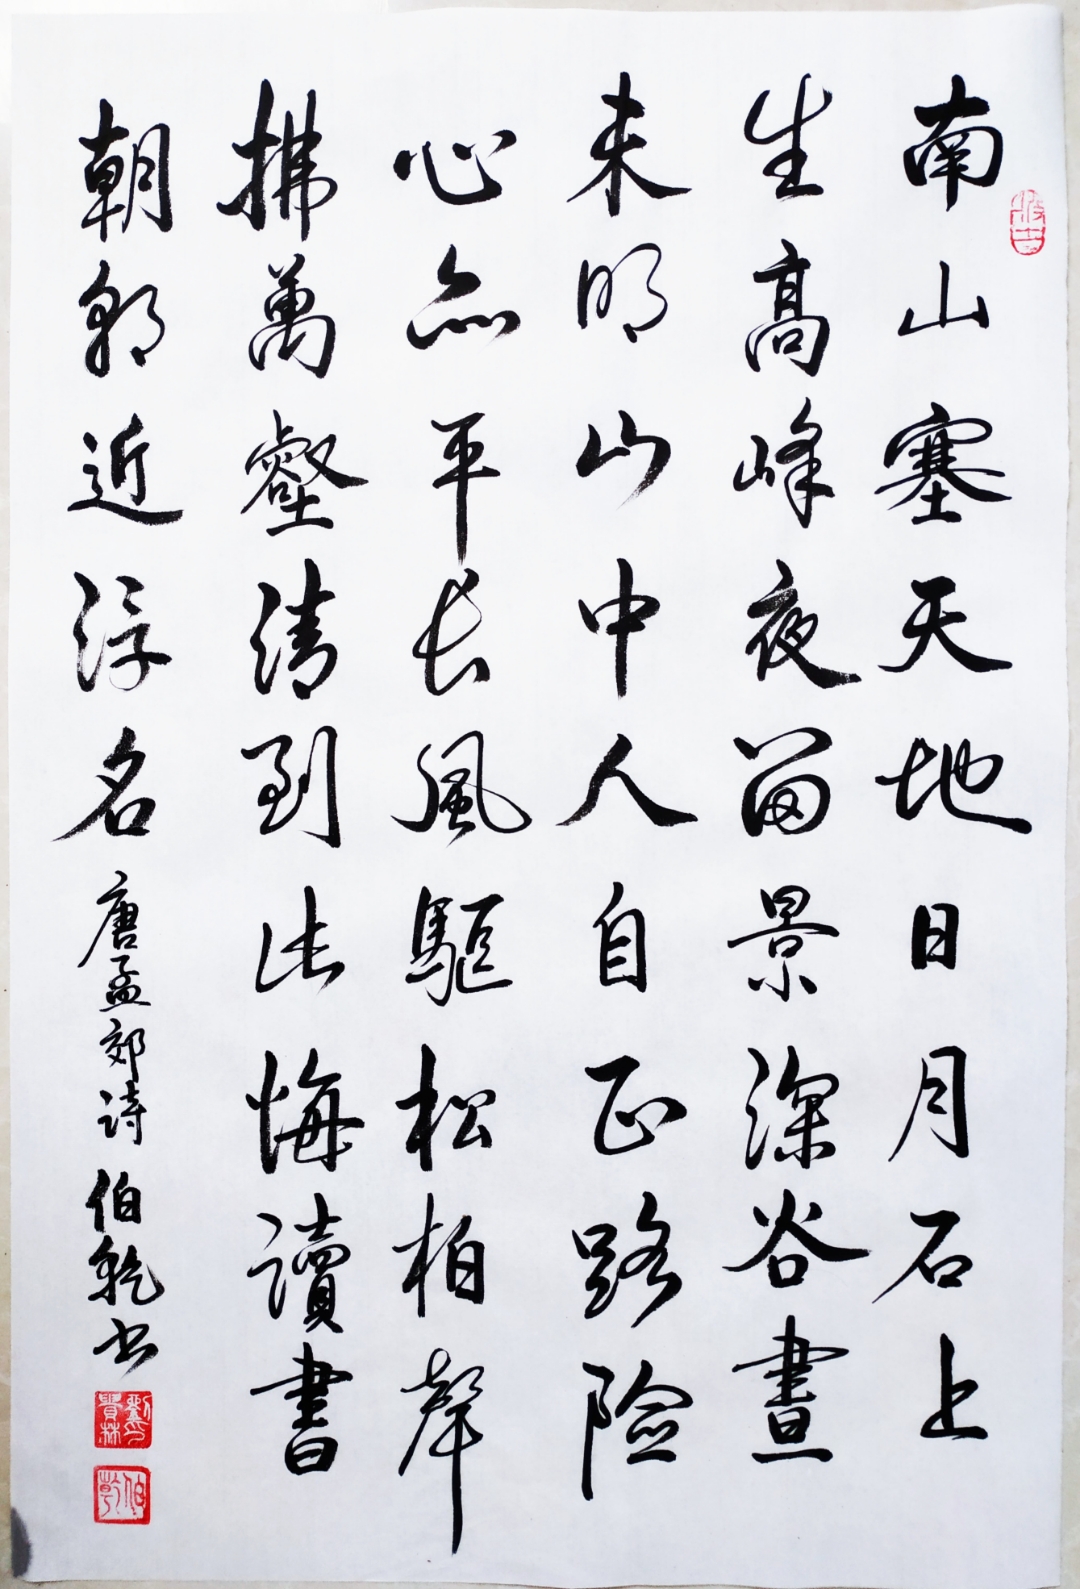 南山塞天地日月石上
生高峰夜留景深谷晝
未明山中人自正路險
心亦平長風驅松柏聲
拂萬壑清到此悔讀書
朝朝近浮名唐孟郊詩伯乾书